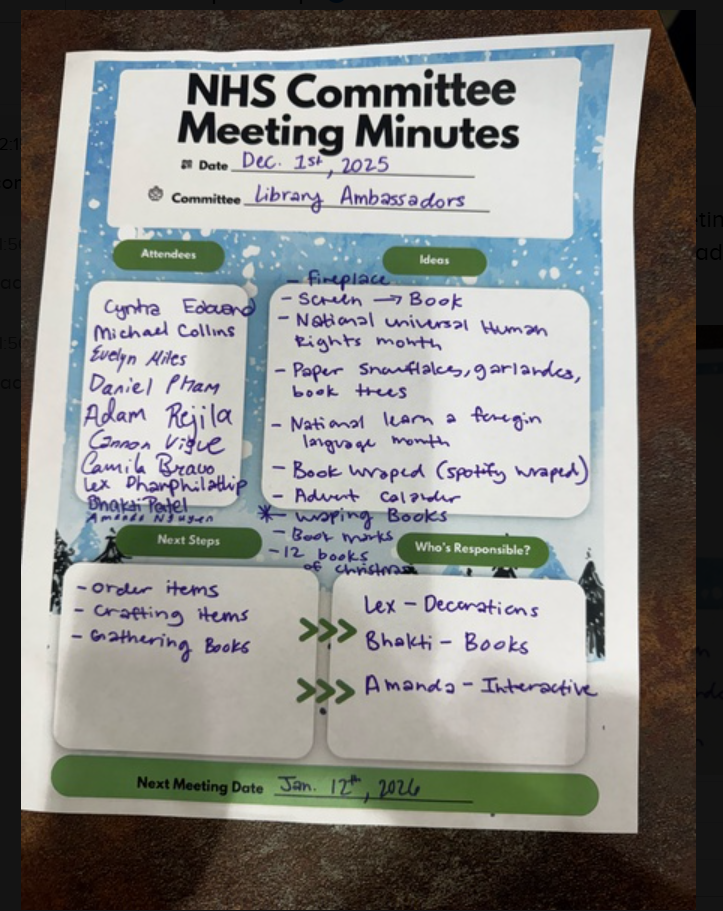 NHS Committee
Meeting Minutes
Date Dec. 1st, 2025
Committee Library Ambassadors
Attendees
Cyntra Edouard
Michael Collins
Evelyn Miles
Daniel Pham
Adam Rejila
Cannon Vigue
Camila Bravo
Lex
Bhakti Patel
Amanda Nguyen
Ideas
- Fireplace
- Screen → Book
- National universal Human
Rights month
- Paper Snowflakes, garlandes,
book trees
- National learn a foregin
language month
- Book wraped (spotify wraped)
- Advent calander
*- wraping Books
- Book marks
- 12 books
of christmas
Next Steps
- order items
- Crafting items
- Gathering Books
Who's Responsible?
Lex - Decorations
Bhakti - Books
Amanda - Interactive
Next Meeting Date Jan. 12th, 2026